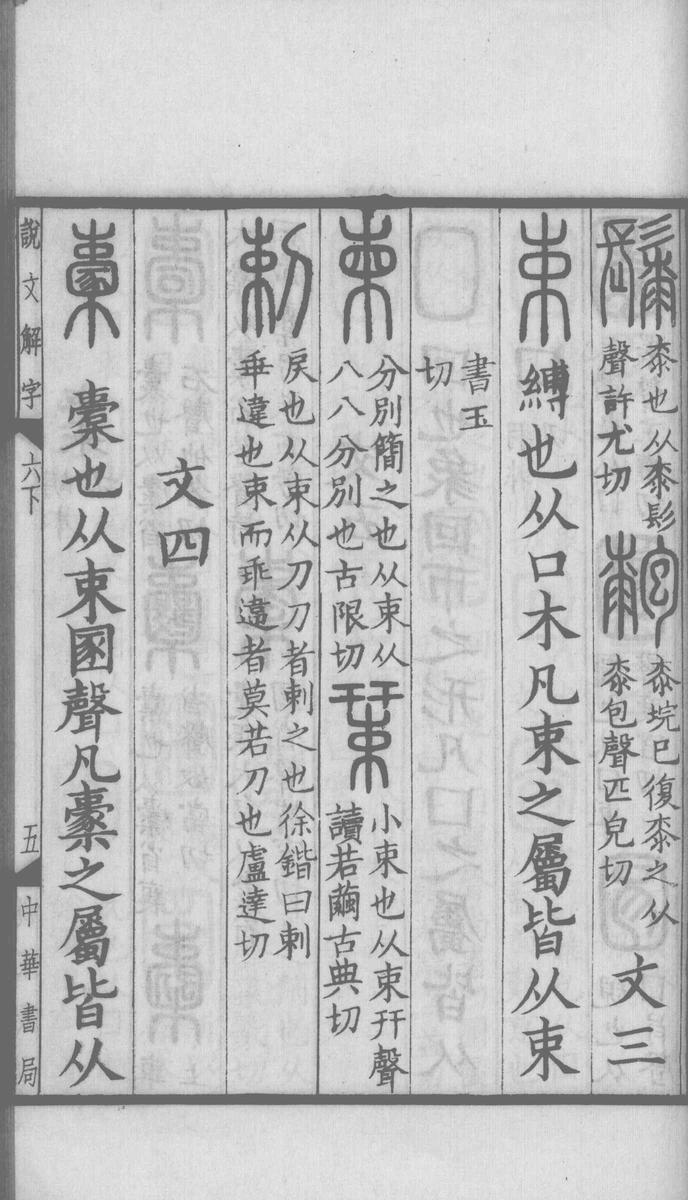 䰍 桼也从桼髟
聲許尤切
䰌 桼垸巳復桼之从
桼包聲匹皃切
文三
束 縛也从口木凡束之屬皆从束
書玉
切
柬 分別簡之也从束从
八八分別也古限切
𣗥 小束也从束幵聲
讀若繭古典切
剌 戾也从束从刀刀者剌之也徐鍇曰剌
乖違也束而乖違者莫若刀也盧達切
文四
㯻 橐也从束圂聲凡㯻之屬皆从
說文解字 六下 五 中華書局